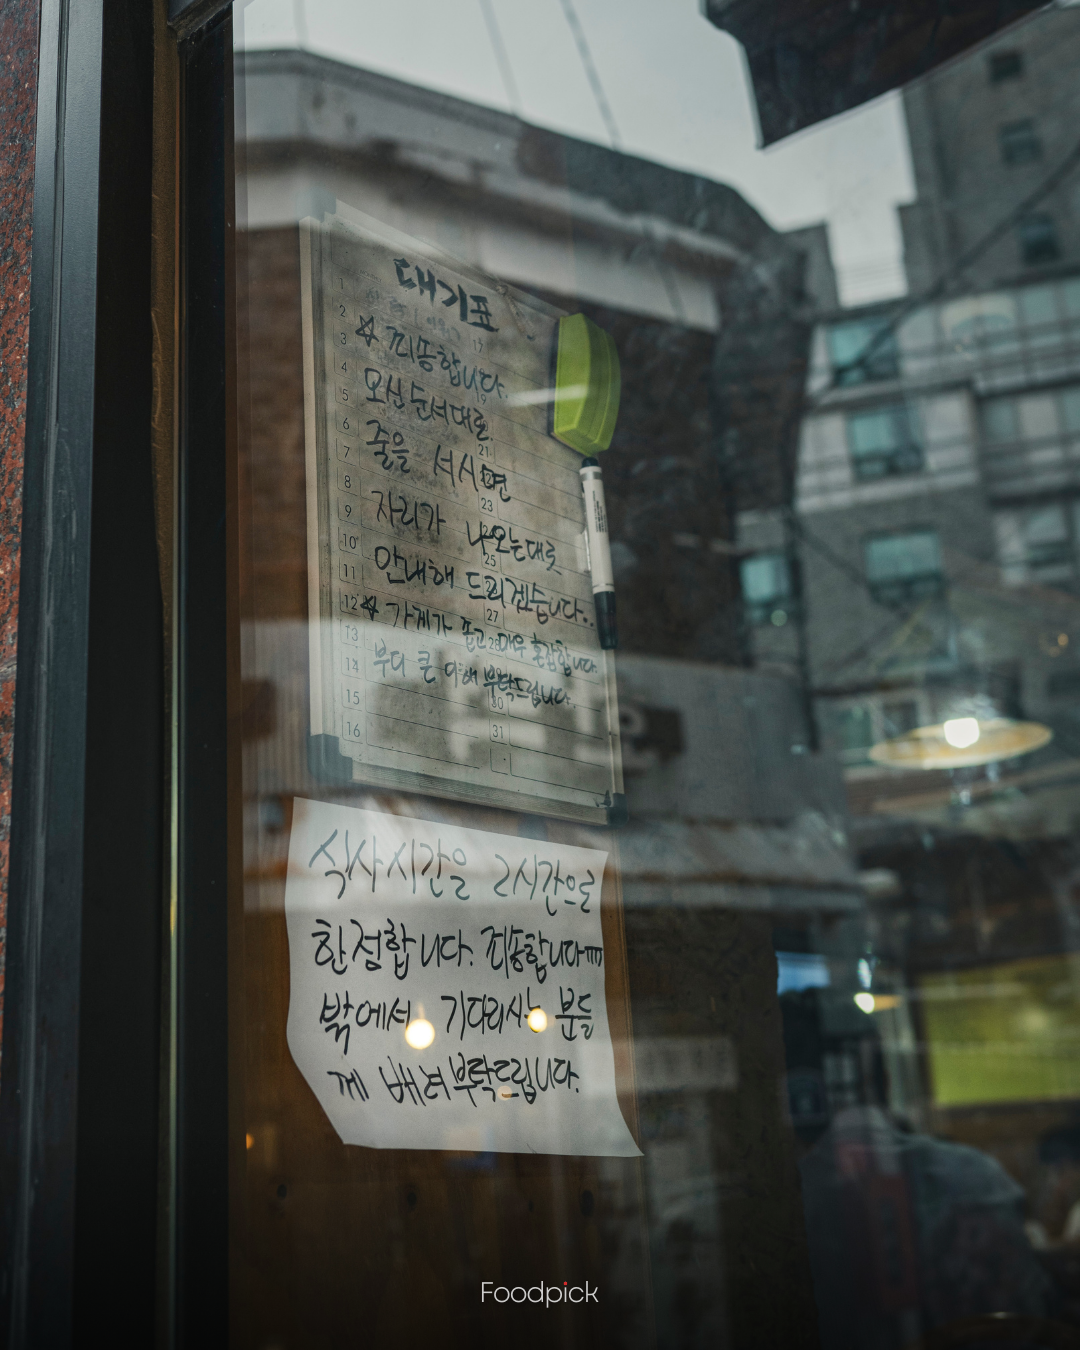 대기표
☆ 죄송합니다.
오신 순서대로
줄을 서시면
자리가 나오는대로
안내해 드리겠습니다..
☆ 가게가 좁고 매우 혼잡합니다.
부디 큰 이해 부탁드립니다.
1
2
3
4
5
6
7
8
9
10
11
12
13
14
15
16
17
19
21
23
25
27
28
30
31
식사시간을 2시간으로
한정합니다. 죄송합니다m
밖에서 기다리시는 분들
께 배려부탁드립니다.
Foodpick